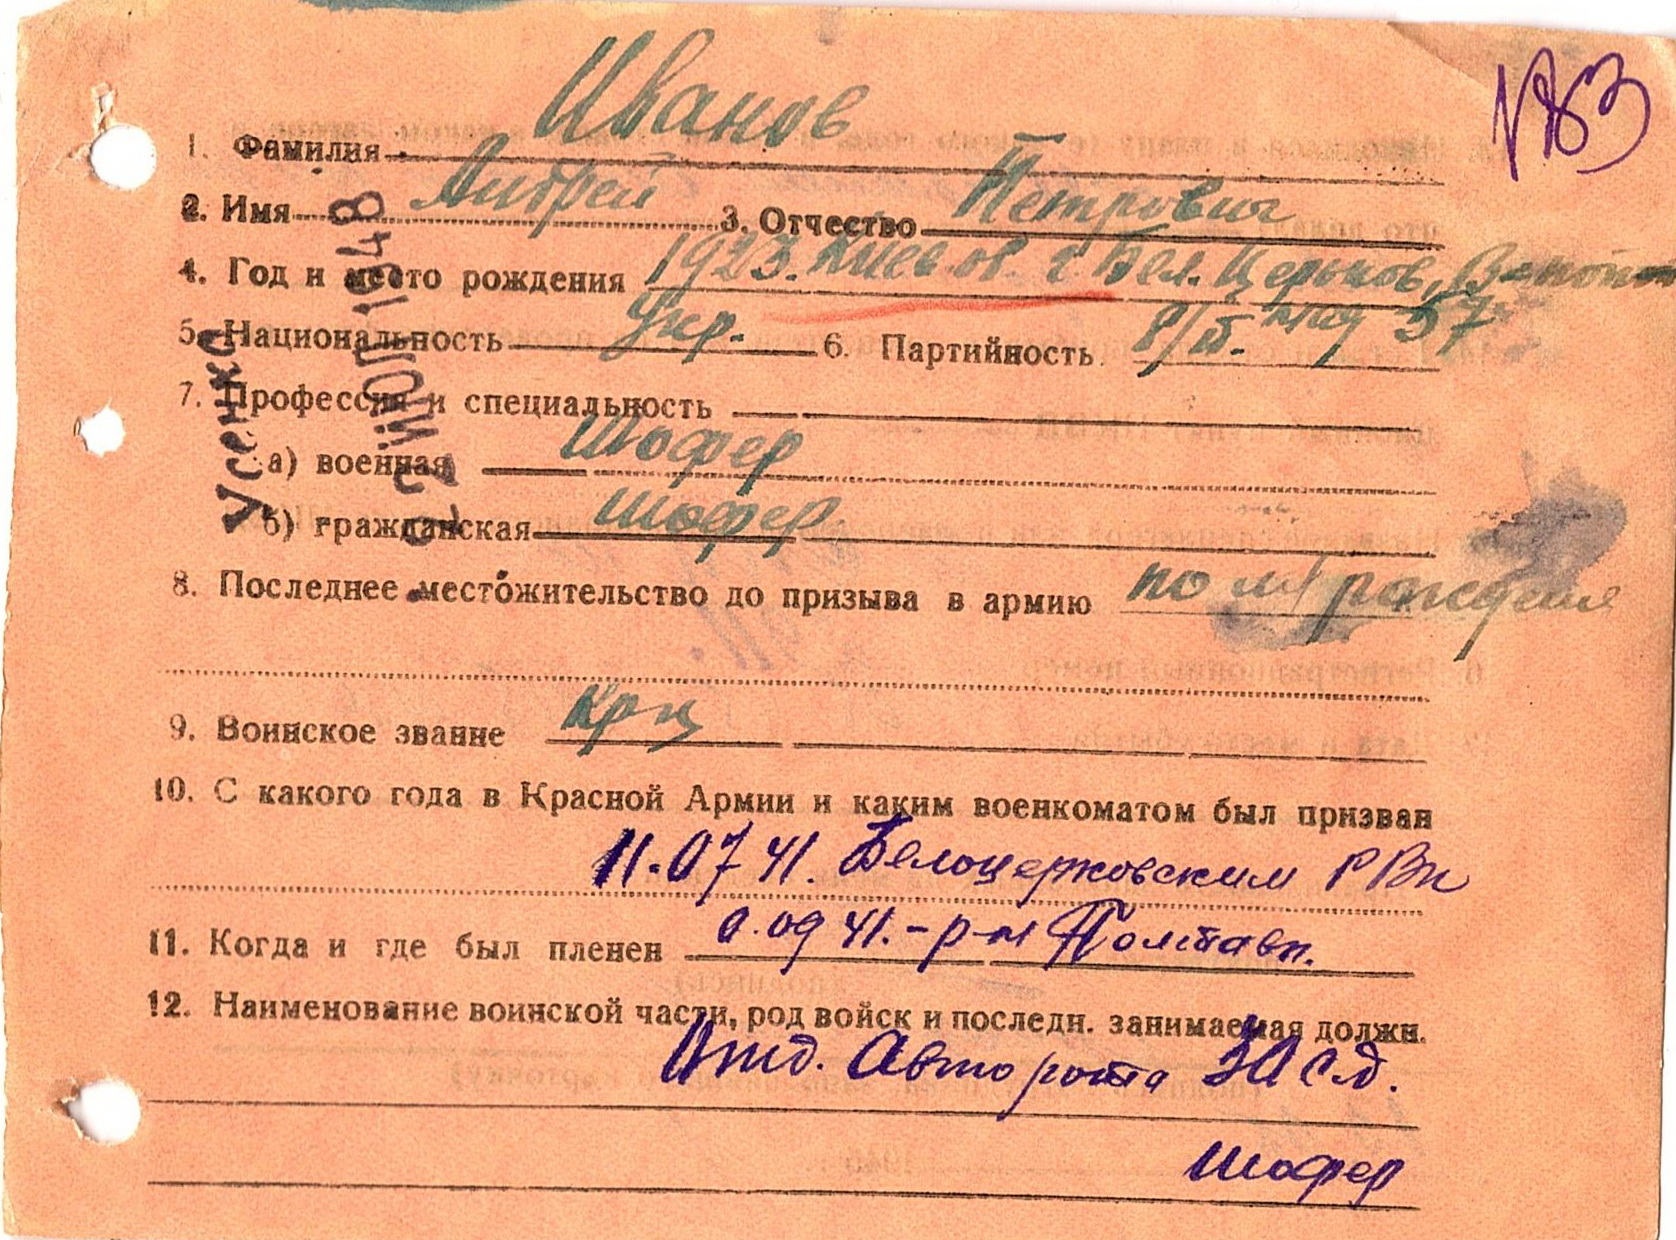 №83
1. Фамилия Иванов
2. Имя Андрей 3. Отчество Петрович
4. Год и место рождения 1923. Киев. ов. г. Бел. Церьков,
5. Национальность Укр. 6. Партийность. б/п. 57
7. Профессия и специальность
а) военная Шофер
б) гражданская шофер
8. Последнее местожительство до призыва в армию по м/рождения
9. Воинское звание Кр-ц
10. С какого года в Красной Армии и каким военкоматом был призван
11.07 41. Белоцерковским РВк
11. Когда и где был пленен 0.09 41. - р-н Полтавы.
12. Наименование воинской части, род войск и последн. занимаемая должн.
Отд. Авторота 30 с.д.
шофер
Усенко
2 ИЮЛ 1948